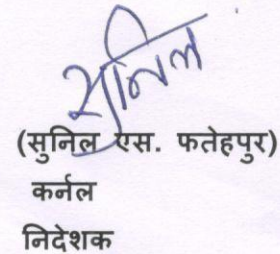 सुनिल
(सुनिल एस. फतेहपुर)
कर्नल
निदेशक